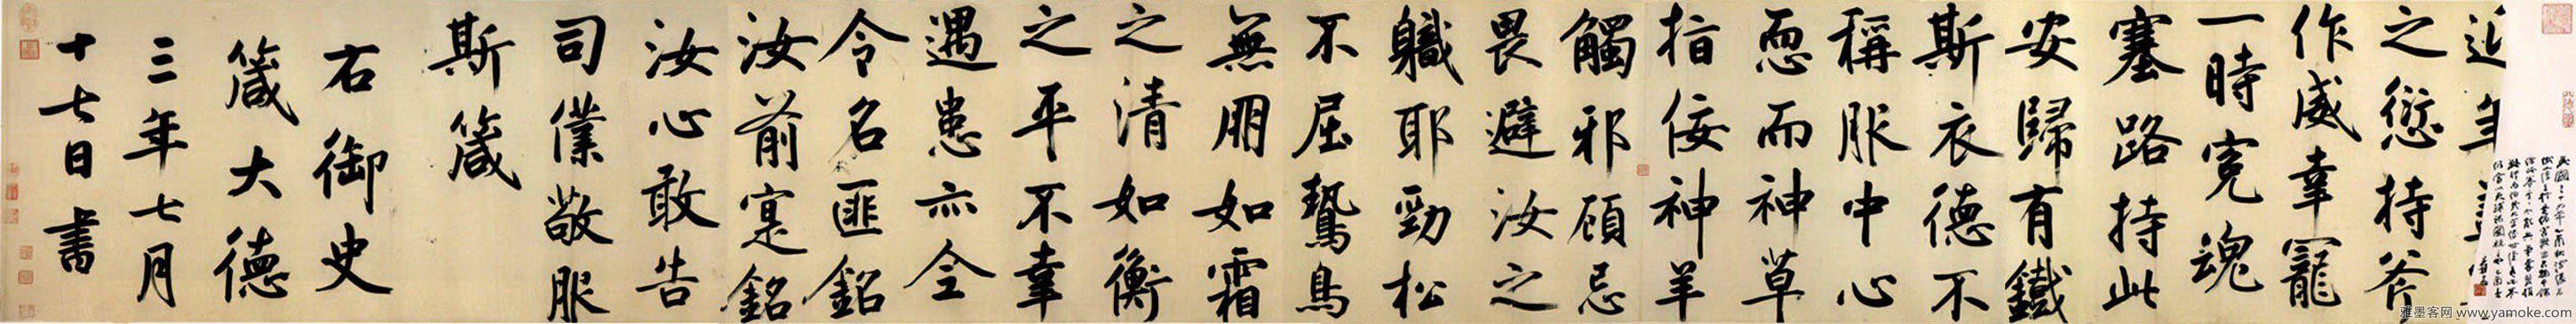 近年
之愆持斧
作威幸寵
一時冤魂
塞路持此
安歸有鐵
斯衣德不
稱服中心
恧而神草
指佞神羊
觸邪顧忌
畏避汝之
軄耶勁松
不屈鷙鳥
無朋如霜
之清如衡
之平不幸
遇患亦令
令名匪銘
汝前寔銘
汝心敢告
司僕敬服
斯箴
右御史
箴大德
三年七月
十七日書
雅墨客网 www.yamoke.com